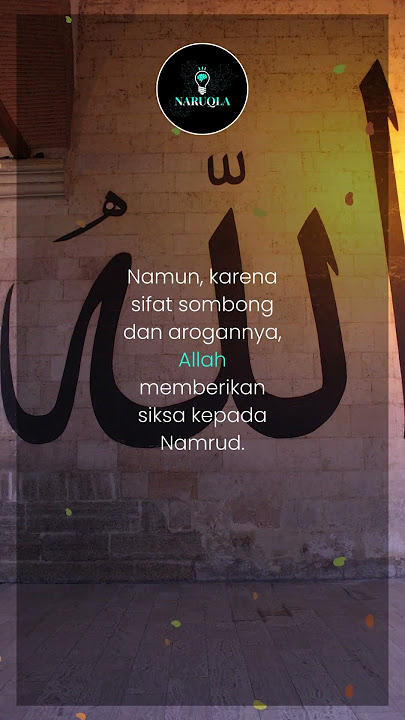 NARUQLA
الله
Namun, karena
sifat sombong
dan arogannya,
Allah
memberikan
siksa kepada
Namrud.